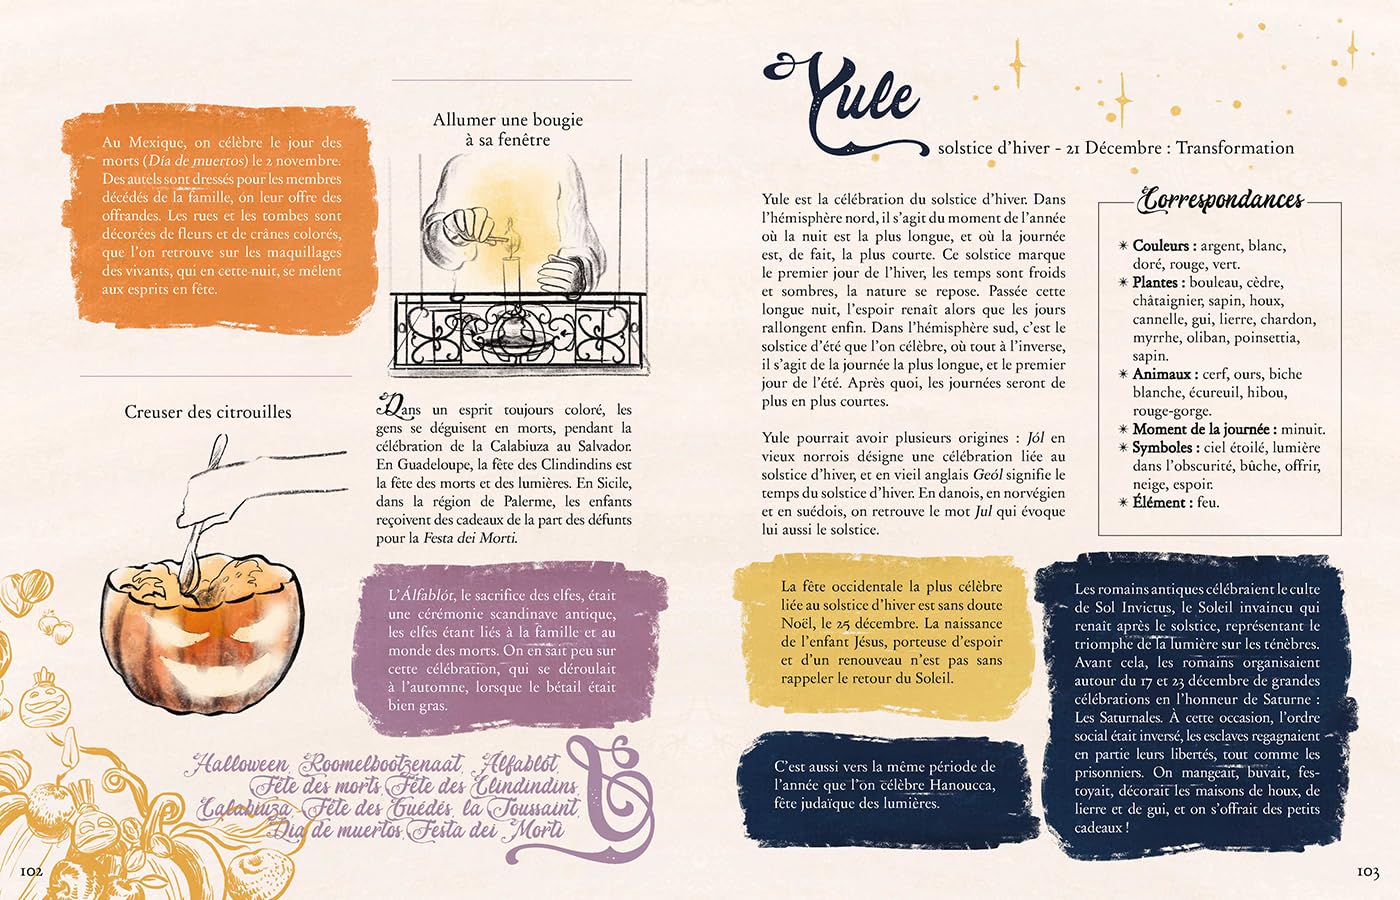 Au Mexique, on célèbre le jour des
morts (Día de muertos) le 2 novembre.
Des autels sont dressés pour les membres
décédés de la famille, on leur offre des
offrandes. Les rues et les tombes sont
décorées de fleurs et de crânes colorés,
que l'on retrouve sur les maquillages
des vivants, qui en cette nuit, se mêlent
aux esprits en fête.
Creuser des citrouilles
Allumer une bougie
à sa fenêtre
Dans un esprit toujours coloré, les
gens se déguisent en morts, pendant la
célébration de la Calabiuza au Salvador.
En Guadeloupe, la fête des Clindindins est
la fête des morts et des lumières. En Sicile,
dans la région de Palerme, les enfants
reçoivent des cadeaux de la part des défunts
pour la Festa dei Morti.
L'Álfablót, le sacrifice des elfes, était
une cérémonie scandinave antique,
les elfes étant liés à la famille et au
monde des morts. On en sait peu sur
cette célébration, qui se déroulait
à l'automne, lorsque le bétail était
bien gras.
Halloween, Roomelbootzenaat, Álfablót,
Fête des morts, Fête des Clindindins,
Calabiuza, Fête des Guédés, la Toussaint,
Dia de muertos, Festa dei Morti
102
Yule
solstice d'hiver - 21 Décembre : Transformation
Yule est la célébration du solstice d'hiver. Dans
l'hémisphère nord, il s'agit du moment de l'année
où la nuit est la plus longue, et où la journée
est, de fait, la plus courte. Ce solstice marque
le premier jour de l'hiver, les temps sont froids
et sombres, la nature se repose. Passée cette
longue nuit, l'espoir renaît alors que les jours
rallongent enfin. Dans l'hémisphère sud, c'est le
solstice d'été que l'on célèbre, où tout à l'inverse,
il s'agit de la journée la plus longue, et le premier
jour de l'été. Après quoi, les journées seront de
plus en plus courtes.
Yule pourrait avoir plusieurs origines : Jól en
vieux norrois désigne une célébration liée au
solstice d'hiver, et en vieil anglais Geól signifie le
temps du solstice d'hiver. En danois, en norvégien
et en suédois, on retrouve le mot Jul qui évoque
lui aussi le solstice.
Correspondances
✴ Couleurs : argent, blanc,
doré, rouge, vert.
✴ Plantes : bouleau, cèdre,
châtaignier, sapin, houx,
cannelle, gui, lierre, chardon,
myrrhe, oliban, poinsettia,
sapin.
✴ Animaux : cerf, ours, biche
blanche, écureuil, hibou,
rouge-gorge.
✴ Moment de la journée : minuit.
✴ Symboles : ciel étoilé, lumière
dans l'obscurité, bûche, offrir,
neige, espoir.
✴ Élément : feu.
La fête occidentale la plus célèbre
liée au solstice d'hiver est sans doute
Noël, le 25 décembre. La naissance
de l'enfant Jésus, porteuse d'espoir
et d'un renouveau n'est pas sans
rappeler le retour du Soleil.
C'est aussi vers la même période de
l'année que l'on célèbre Hanoucca,
fête judaïque des lumières.
Les romains antiques célébraient le culte
de Sol Invictus, le Soleil invaincu qui
renaît après le solstice, représentant le
triomphe de la lumière sur les ténèbres.
Avant cela, les romains organisaient
autour du 17 et 23 décembre de grandes
célébrations en l'honneur de Saturne :
Les Saturnales. À cette occasion, l'ordre
social était inversé, les esclaves regagnaient
en partie leurs libertés, tout comme les
prisonniers. On mangeait, buvait, fes-
toyait, décorait les maisons de houx, de
lierre et de gui, et on s'offrait des petits
cadeaux !
103